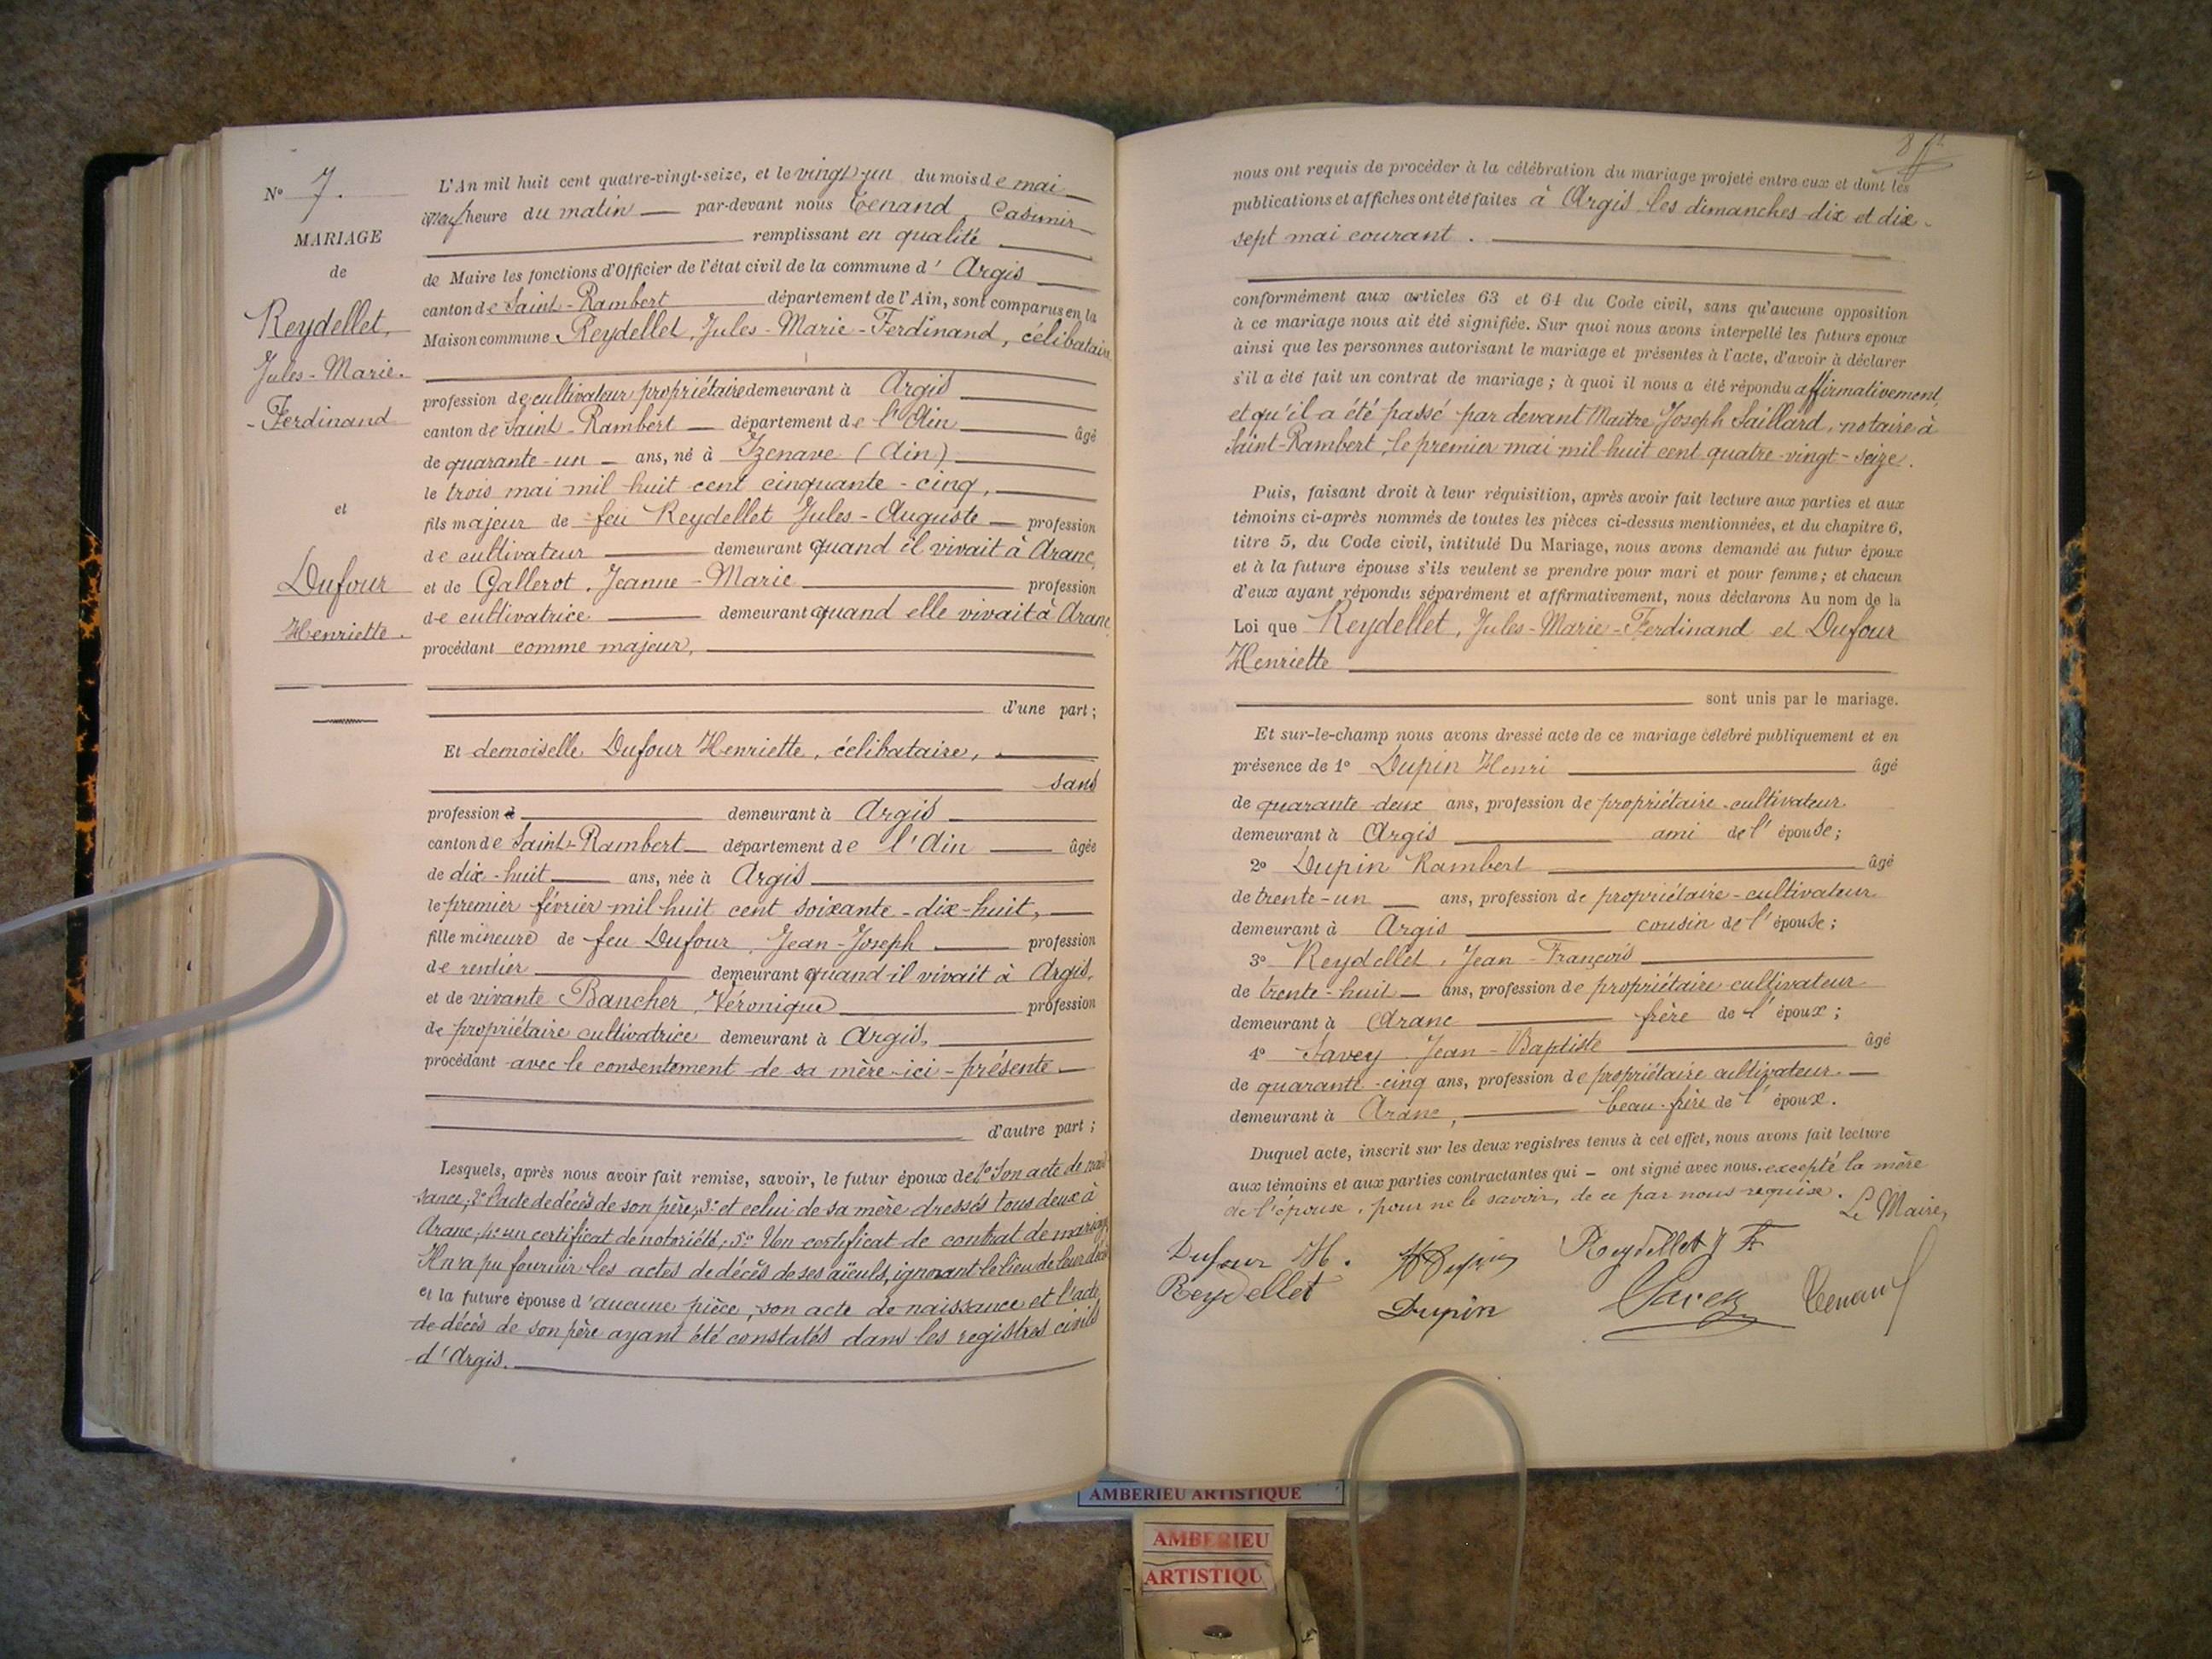 N° 7.
MARIAGE
de
Reydellet,
Jules-Marie.
-Ferdinand
et
Dufour
Henriette.
L'An mil huit cent quatre-vingt-seize, et le vingt-un du mois de mai
neuf heure du matin par-devant nous Tenand Casimir
remplissant en qualité
de Maire les fonctions d'Officier de l'état civil de la commune d'Argis
canton de Saint-Rambert département de l'Ain, sont comparus en la
Maison commune Reydellet, Jules-Marie-Ferdinand, célibataire
profession de cultivateur propriétaire demeurant à Argis
canton de Saint-Rambert département de l'Ain âgé
de quarante-un ans, né à Izenave (Ain)
le trois mai mil huit cent cinquante-cinq,
fils majeur de feu Reydellet Jules-Auguste profession
de cultivateur demeurant quand il vivait à Aranc,
et de Gallerot, Jeanne-Marie profession
de cultivatrice demeurant quand elle vivait à Aranc
procédant comme majeur,
d'une part;
Et demoiselle Dufour Henriette, célibataire,
sans
profession demeurant à Argis
canton de Saint-Rambert département de l'Ain âgée
de dix-huit ans, née à Argis
le premier février mil huit cent soixante-dix-huit,
fille mineure de feu Dufour, Jean-Joseph profession
de rentier demeurant quand il vivait à Argis,
et de vivante Bancher, Véronique profession
de propriétaire cultivatrice demeurant à Argis,
procédant avec le consentement de sa mère ici-présente
d'autre part;
Lesquels, après nous avoir fait remise, savoir, le futur époux de 1° Son acte de nais
sance; 2° l'acte de décès de son père; 3° et celui de sa mère dressés tous deux à
Aranc; 4° un certificat de notoriété; 5° Un certificat de contrat de mariage
Il n'a pu fournir les actes de décès de ses aïeuls, ignorant le lieu de leur décès
et la future épouse d'aucune pièce, son acte de naissance et l'acte
de décès de son père ayant été constatés dans les registres civils
d'Argis.
nous ont requis de procéder à la célébration du mariage projeté entre eux et dont les
publications et affiches ont été faites à Argis les dimanches dix et dix-
sept mai courant.
conformément aux articles 63 et 64 du Code civil, sans qu'aucune opposition
à ce mariage nous ait été signifiée. Sur quoi nous avons interpellé les futurs époux
ainsi que les personnes autorisant le mariage et présentes à l'acte, d'avoir à déclarer
s'il a été fait un contrat de mariage; à quoi il nous a été répondu affirmativement
et qu'il a été passé par devant Maître Joseph Saillard, notaire à
Saint-Rambert, le premier mai mil huit cent quatre-vingt-seize.
Puis, faisant droit à leur réquisition, après avoir fait lecture aux parties et aux
témoins ci-après nommés de toutes les pièces ci-dessus mentionnées, et du chapitre 6,
titre 5, du Code civil, intitulé Du Mariage, nous avons demandé au futur époux
et à la future épouse s'ils veulent se prendre pour mari et pour femme; et chacun
d'eux ayant répondu séparément et affirmativement, nous déclarons Au nom de la
Loi que Reydellet, Jules-Marie-Ferdinand et Dufour
Henriette
sont unis par le mariage.
Et sur-le-champ nous avons dressé acte de ce mariage célébré publiquement et en
présence de 1° Dupin Henri âgé
de quarante-deux ans, profession de propriétaire-cultivateur
demeurant à Argis ami de l'épouse;
2° Dupin Rambert âgé
de trente-un ans, profession de propriétaire-cultivateur
demeurant à Argis cousin de l'épouse;
3° Reydellet, Jean-François
de trente-huit ans, profession de propriétaire cultivateur
demeurant à Aranc frère de l'époux;
4° Savey Jean-Baptiste âgé
de quarante-cinq ans, profession de propriétaire cultivateur.
demeurant à Aranc, beau-frère de l'époux.
Duquel acte, inscrit sur les deux registres tenus à cet effet, nous avons fait lecture
aux témoins et aux parties contractantes qui ont signé avec nous. excepté la mère
de l'épouse, pour ne le savoir, de ce par nous requise.
Le Maire,
Dufour H. H Dupin Reydellet J F
Reydellet Dupin Savey Tenand
AMBERIEU ARTISTIQUE
AMBERIEU
ARTISTIQU